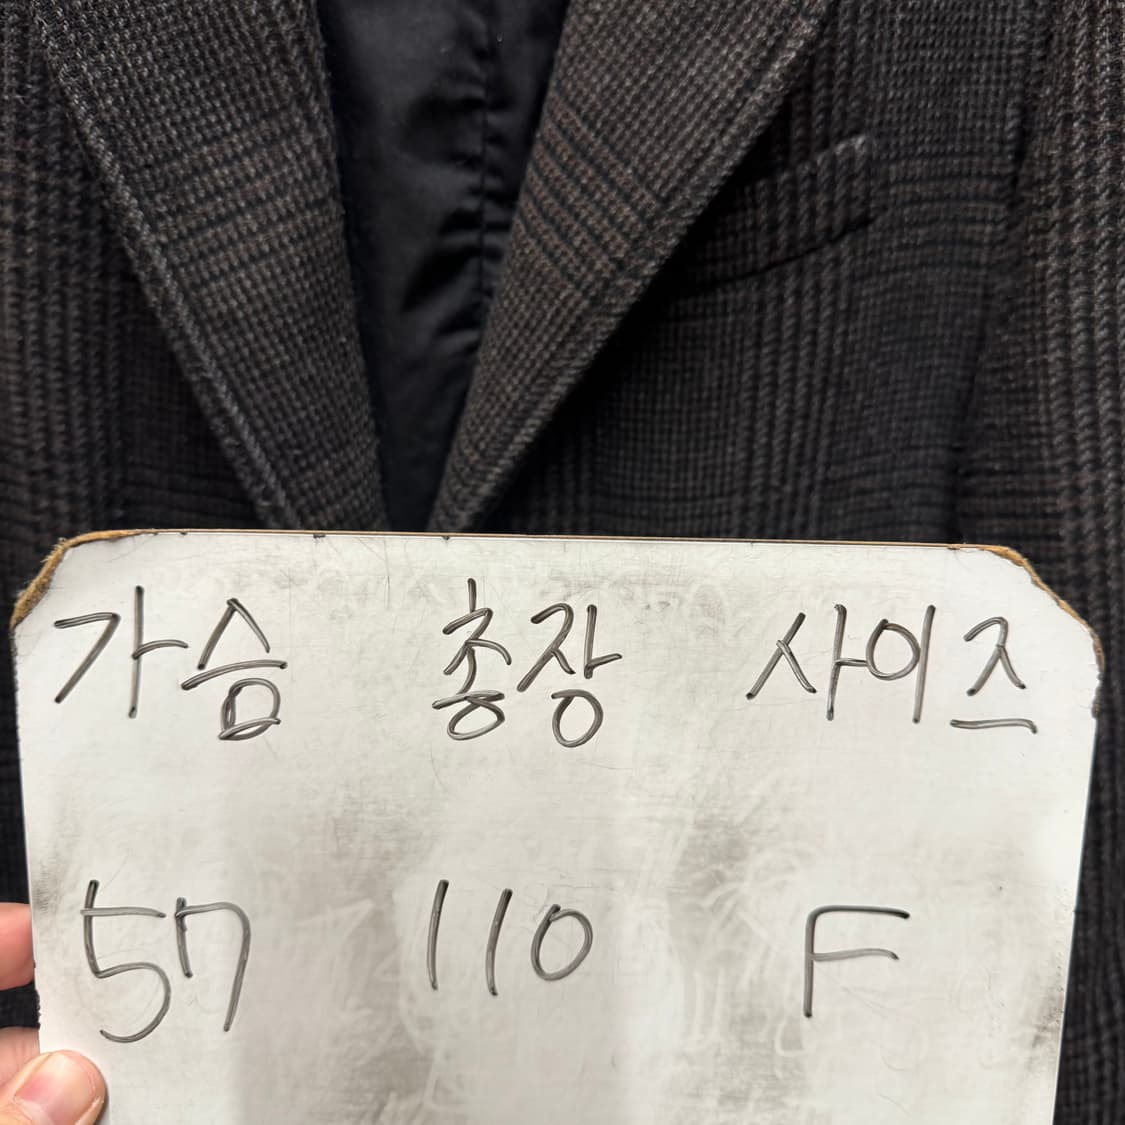 가슴 총장 사이즈
57 110 F